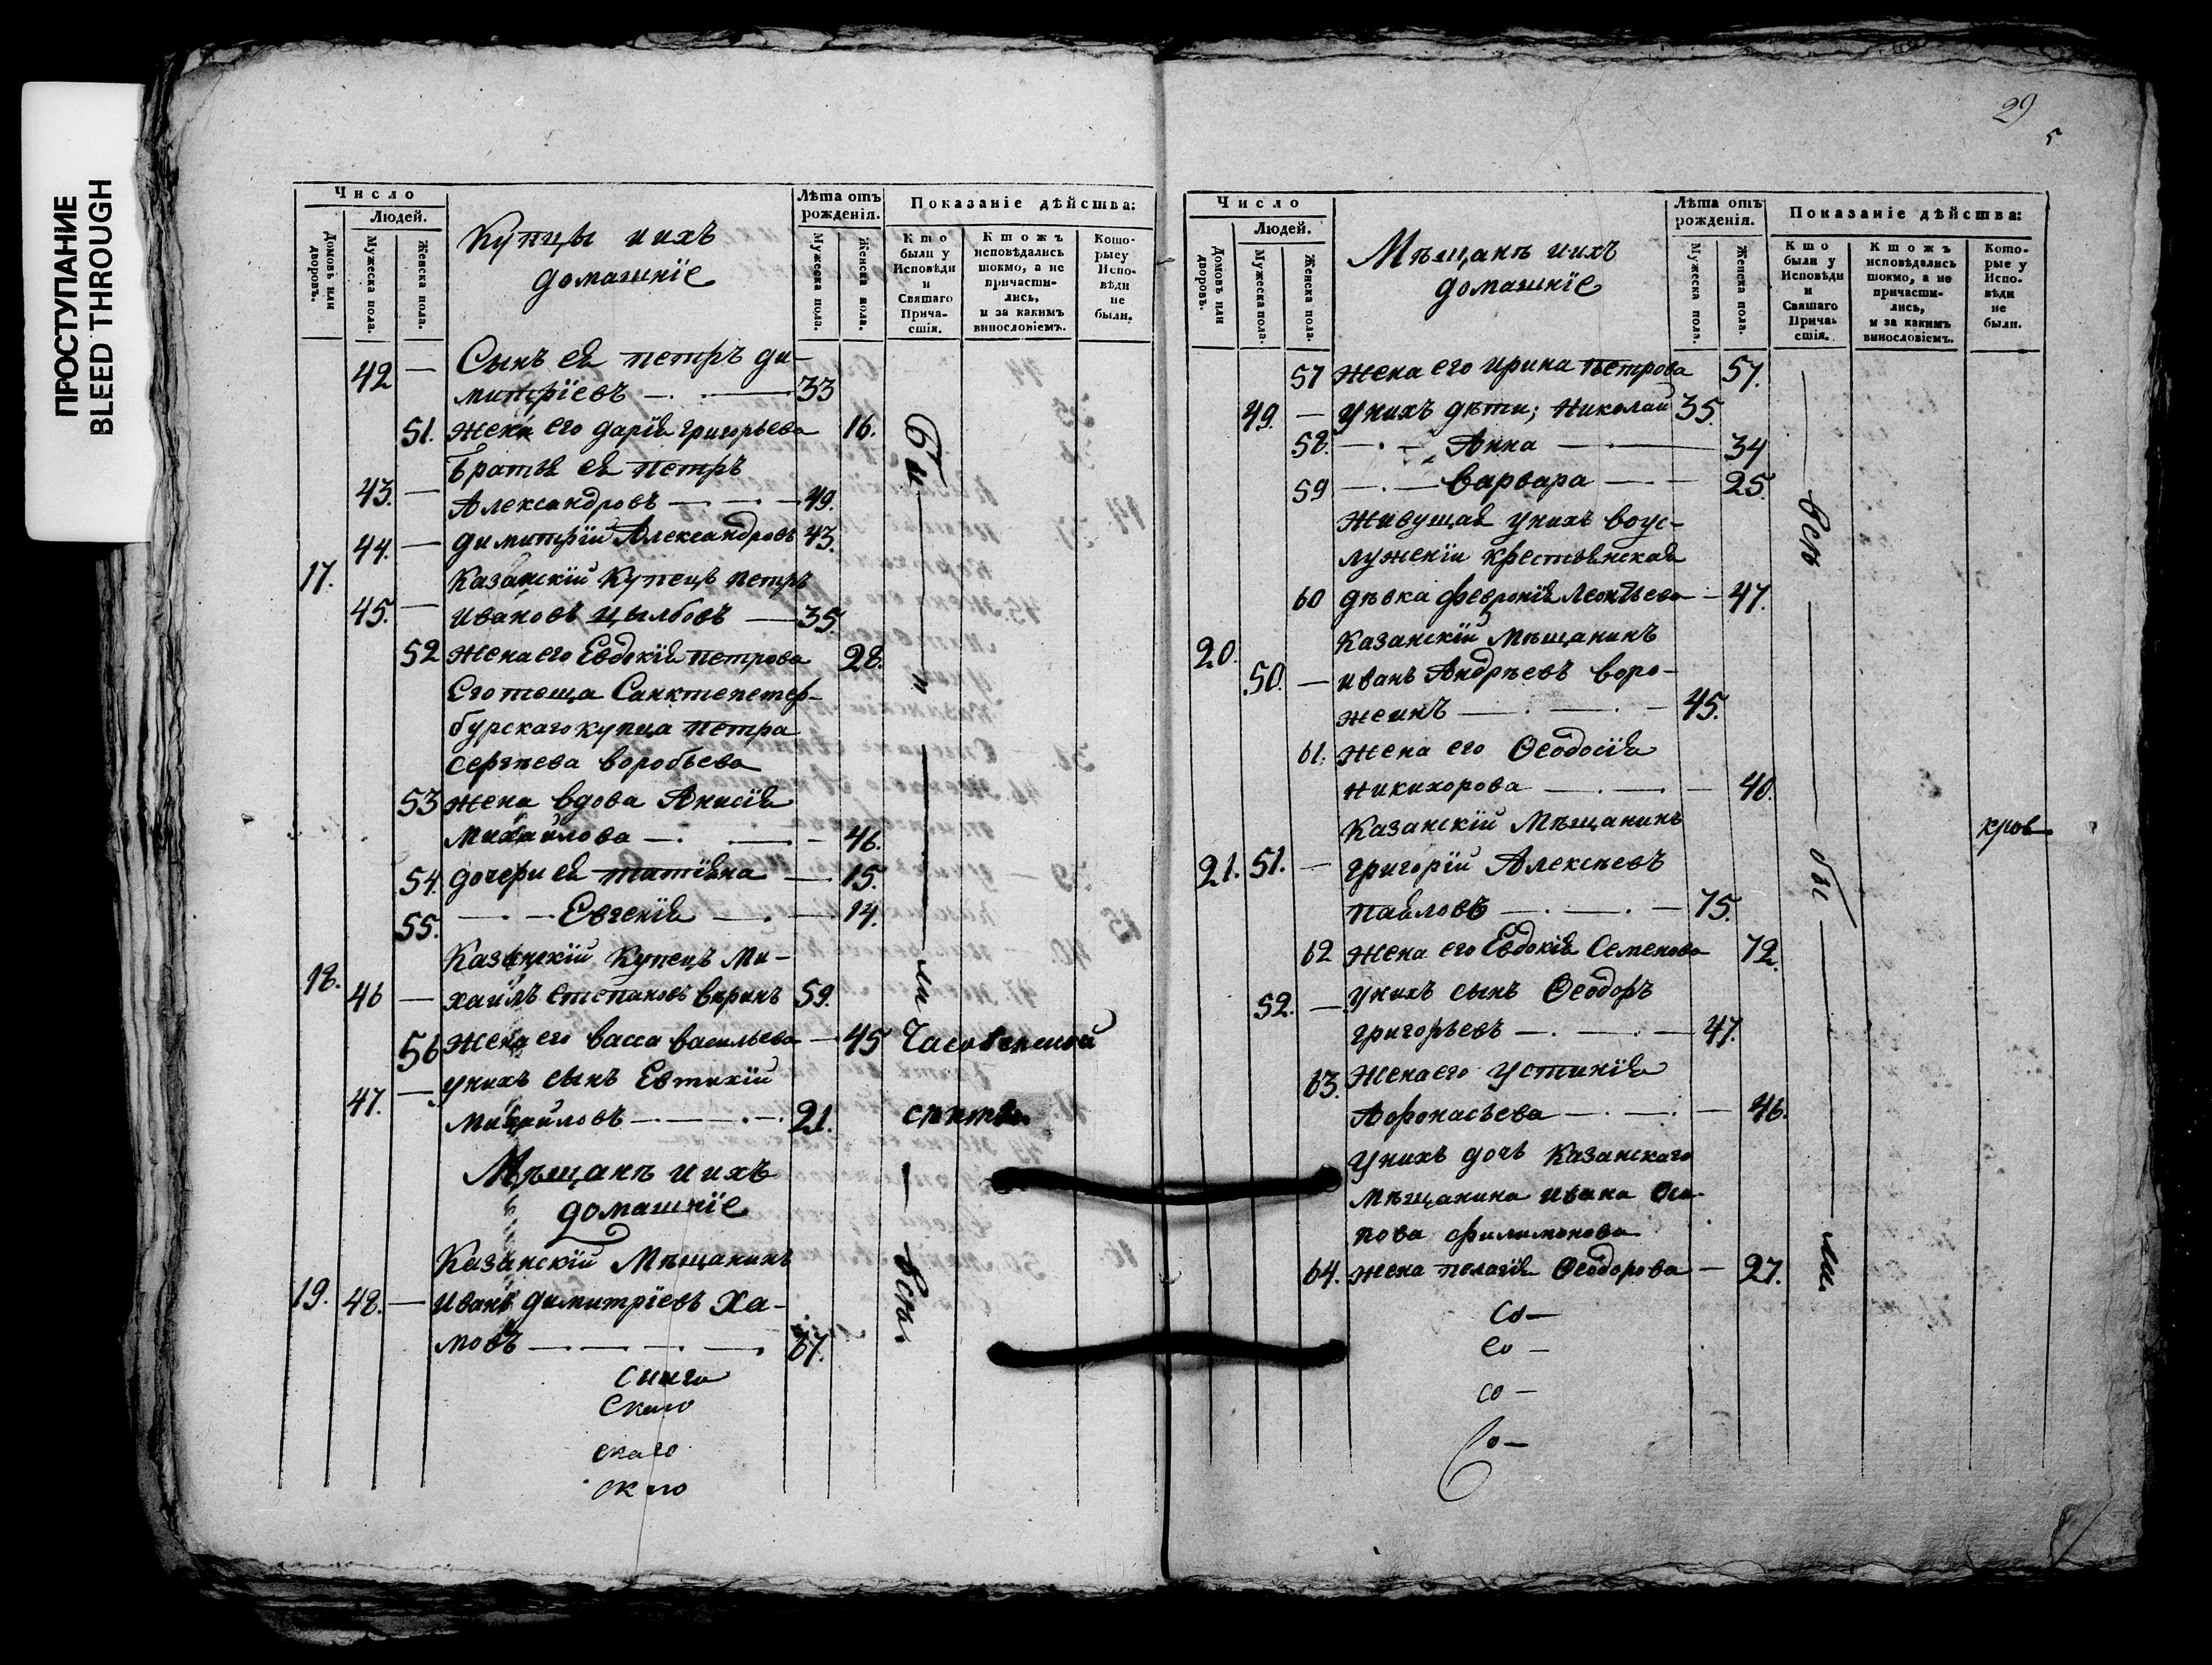 ПРОСТУПАНИЕ
BLEED THROUGH
Число
Людей.
Домовъ или дворовъ.
Мужеска пола.
Женска пола.
Купцы и ихъ
домашніе
Лѣта отъ рожденія.
Мужеска пола.
Женска пола.
Показаніе дѣйства:
Кто были у Исповѣди и Святаго Прича-стія.
Ктожъ исповѣдались токмо, а не причасти-лись, и за какимъ винословіемъ.
Кото-рыеу Испо-вѣди не были.
42 — Сынъ ея петръ ди-
митріевъ — 33
51. жена его дарія григорьева 16.
братья ея петръ
43. — Александровъ — 49.
44. — димитрій Александровъ 43.
17. Казанскій Купецъ петръ
45. — ивановъ цылбовъ — 35.
52 жена его Евдокія петрова 28.
Его теща Санктепетер-
бурскаго купца петра
сергѣева воробьева
53 жена вдова Анисія
михайлова — 46.
54. дочери ея татіяна — 15.
55. — Евгенія — 14.
Казанскій Купецъ Ми-
18. 46 — хаилъ степановъ 59.
56 жена его васса васильева — 45 Часовенной
унихъ сынъ Евтихій
47. — Михайловъ — 21.
Бы — и — ли
Мѣщанѣ и ихъ
домашніе
Казанскій Мѣщанинъ
19. 48. — иванъ димитріевъ Ха-
мовъ — 67.
— всѣ
29
5
Число
Людей.
Домовъ или дворовъ.
Мужеска пола.
Женска пола.
Мѣщанѣ и ихъ
домашніе
Лѣта отъ рожденія.
Мужеска пола.
Женска пола.
Показаніе дѣйства:
Кто были у Исповѣди и Святаго Прича-стія.
Ктожъ исповѣдались токмо, а не причасти-лись, и за какимъ винословіемъ.
Кото-рые у Испо-вѣди не были.
57 жена его ирина петрова 57.
49. — унихъ дѣти; николай 35.
58. — Анна — 34
59 — варвара — 25.
живущая унихъ воус-
луженіи крестьянская
60 дѣвка февронія леонтьева — 47.
20. Казанскій мѣщанинъ
50. — иванъ Андрѣевъ воро-
жеинъ — 45.
61. жена его Ѳеодосія
никихорова — 40.
Казанскій Мѣщанинъ
21. 51. — григорій Алексѣевъ
павловъ — 75.
62 жена его Евдокія Семенова 72.
52. — унихъ сынъ Ѳеодоръ
григорьевъ — 47.
63. жена его устинія
Афонасьева — 46.
Унихъ дочь Казанскаго
мѣщанина ивана Оси-
пова филимонова
64. жена пелагія Ѳеодорова — 27.
— всѣ — бы — ли
кров